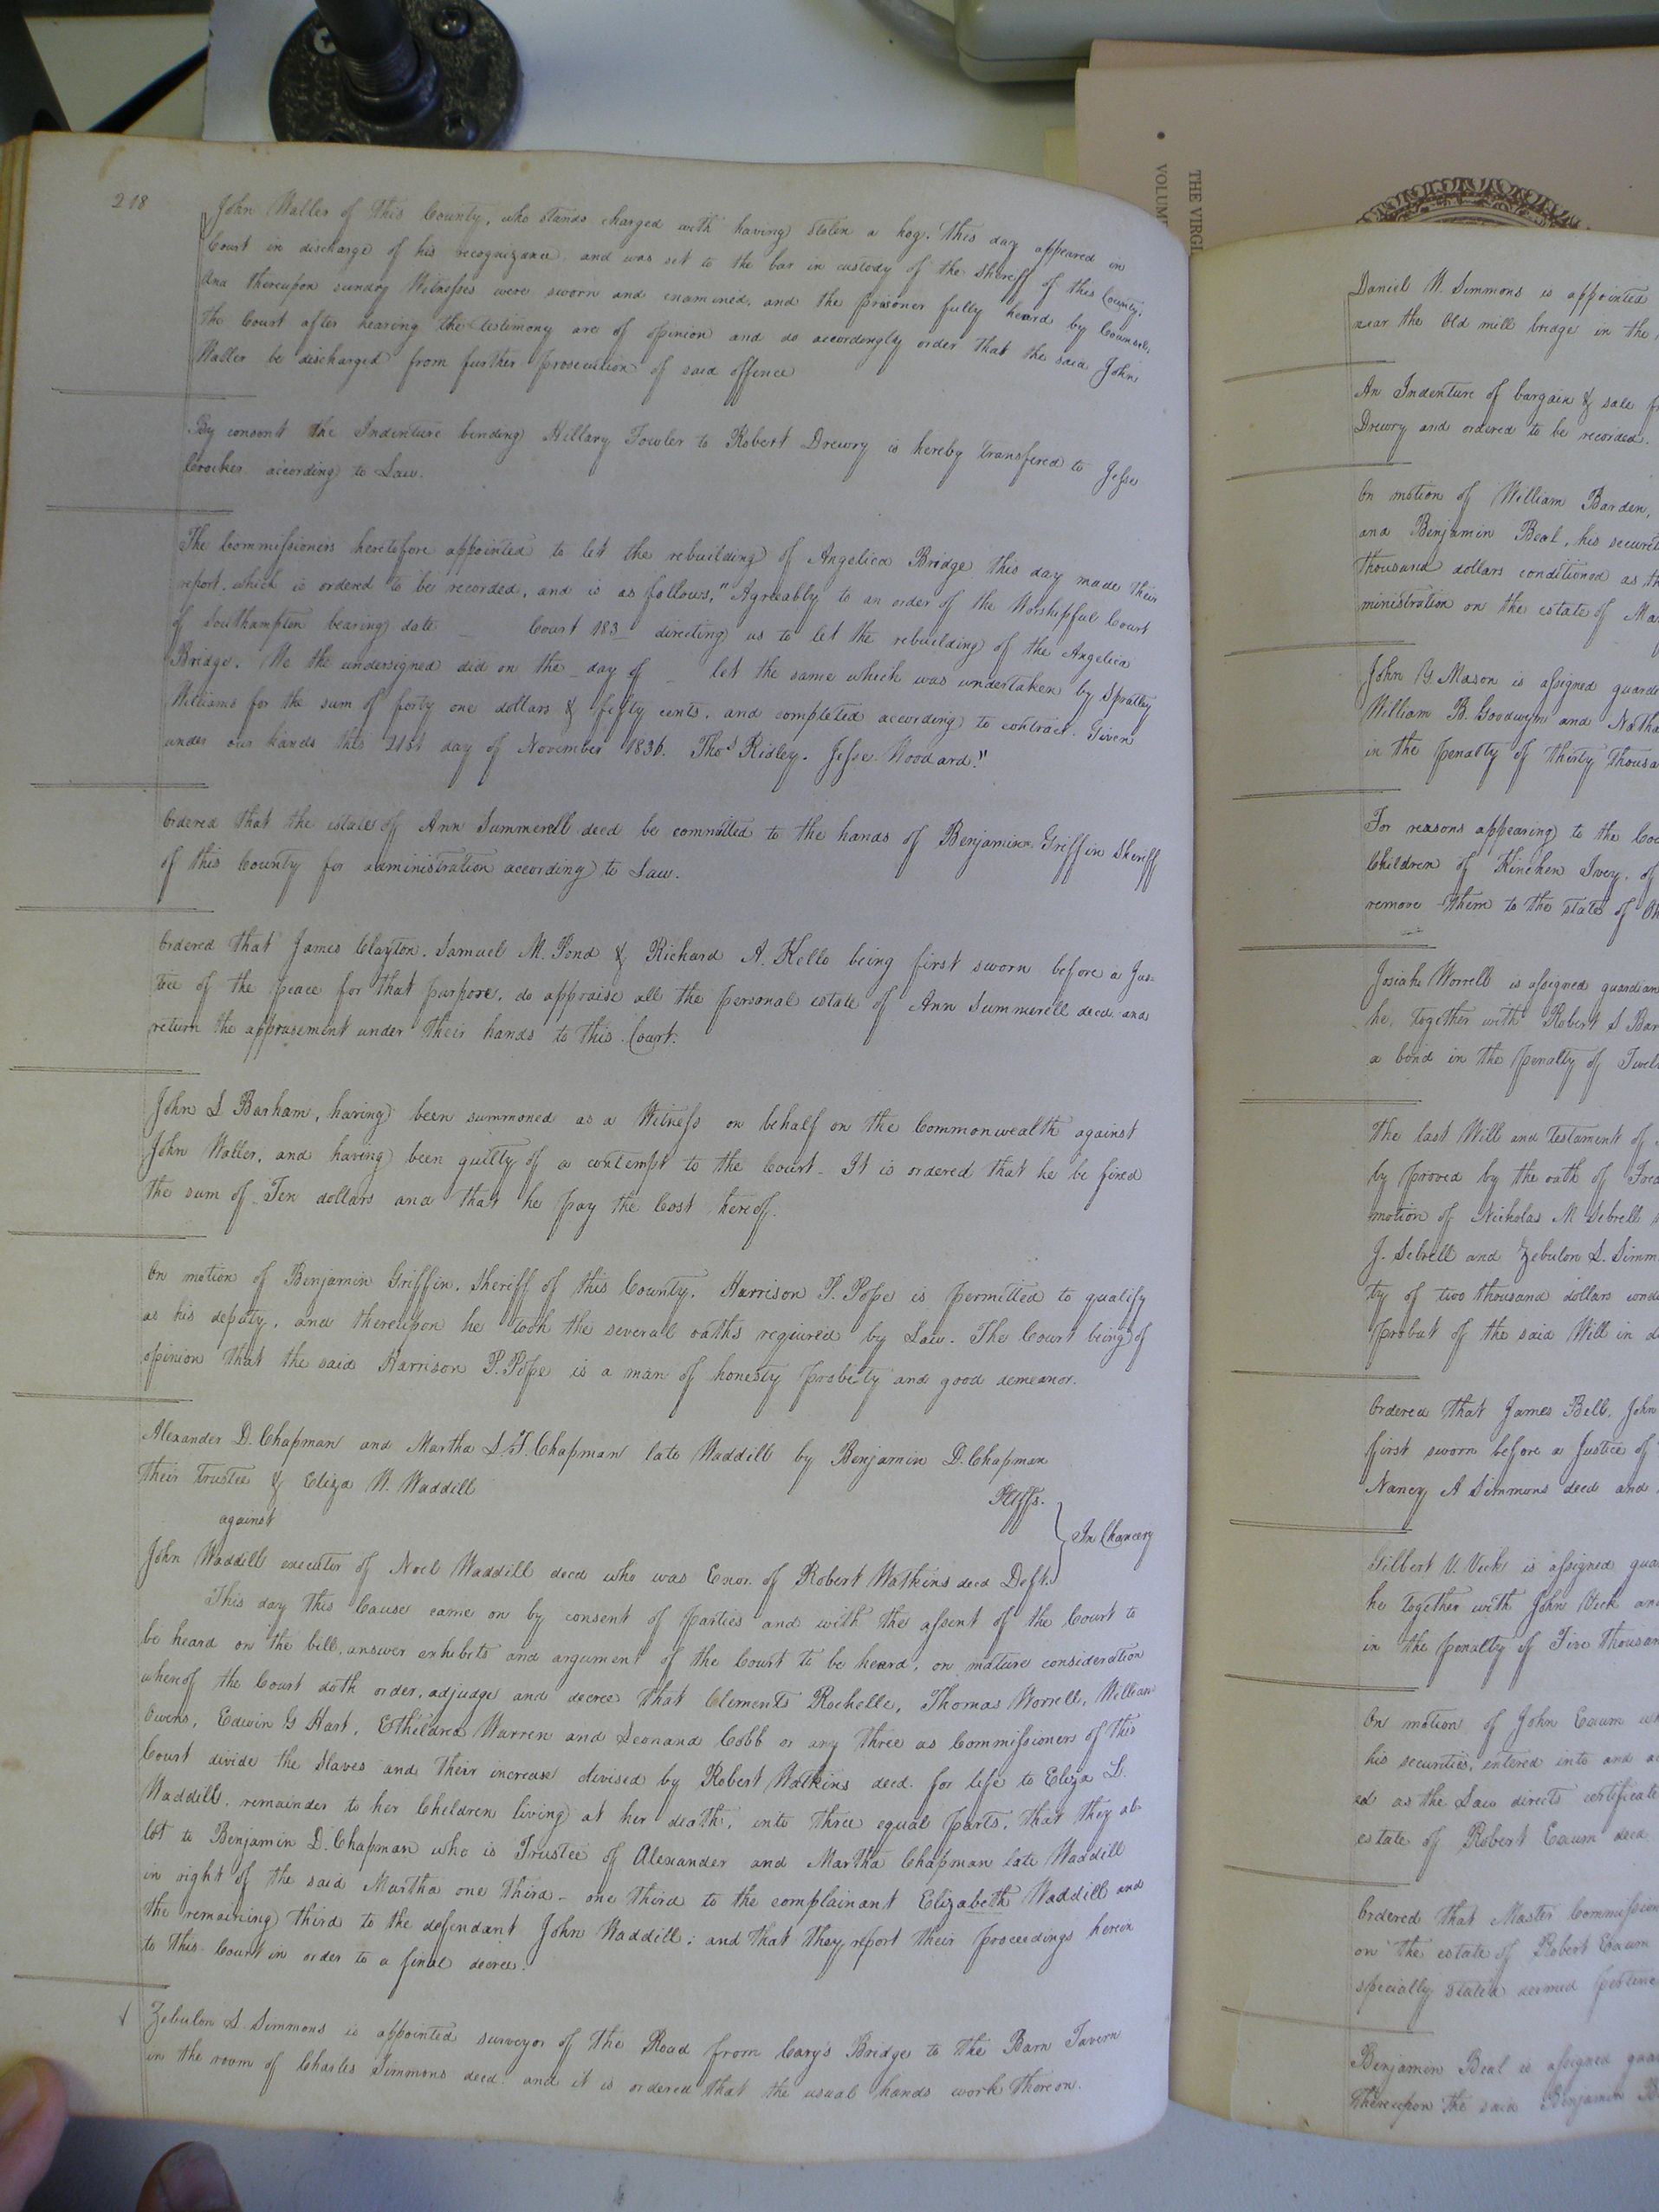 218
John Waller of this County, who stands charged with having stolen a hog. this day appeared in
Court in discharge of his recognizance, and was set to the bar in custody of the Sheriff of this County;
And thereupon sundry Witnesses were sworn and examined, and the prisoner fully heard by Counsel;
the Court after hearing the testimony are of opinion and do accordingly order that the said John
Waller be discharged from further prosecution of said offence
By consent the Indenture binding Hillary Fowler to Robert Drewry is hereby transfered to Jesse
Crocker according to Law.
The Commissioners heretofore appointed to let the rebuilding of Angelica Bridge this day made their
report, which is ordered to be recorded, and is as follows, "Agreeably to an order of the Worshipful Court
of Southampton bearing date _ Court 183_ directing us to let the rebuilding of the Angelica
Bridge. We the undersigned did on the _ day of _ let the same which was undertaken by Spratley
Williams for the sum of forty one dollars & fifty cents, and completed according to contract. Given
under our hands this 21st day of November 1836. Thos Ridley. Jesse Woodard."
Ordered that the estate of Ann Summerell decd be committed to the hands of Benjamin Griffin Sheriff
of this County for administration according to Law.
Ordered that James Clayton, Samuel M. Pond & Richard A. Kello being first sworn before a Jus-
tice of the peace for that purpose, do appraise all the personal estate of Ann Summerell decd. and
return the apprasement under their hands to this Court.
John S Barham, having been summoned as a Witness on behalf on the Commonwealth against
John Waller, and having been guilty of a contempt to the Court - It is ordered that he be fined
the sum of Ten dollars and that he pay the Cost hereof.
On motion of Benjamin Griffin, Sheriff of this County. Harrison P. Pope is permitted to qualify
as his deputy, and thereupon he took the several oaths required by Law. The Court being of
opinion that the said Harrison P. Pope is a man of honesty probity and good demeanor.
Alexander D. Chapman and Martha S. T. Chapman late Waddill by Benjamin D. Chapman
their trustee & Eliza W. Waddill Pltffs.
against
In Chancery
John Waddill executor of Noel Waddill decd who was Exor. of Robert Watkins decd Deft.
This day this Cause came on by consent of parties and with the assent of the Court to
be heard on the bill, answer exhibits and argument of the Court to be heard, on mature consideration
whereof the Court doth order, adjudge and decree that Clements Rochelle, Thomas Worrell, William
Owens, Edwin G Hart, Etheldred Warren and Leonard Cobb or any three as Commissioners of this
Court divide the Slaves and their increase devised by Robert Watkins decd. for life to Eliza L.
Waddill, remainder to her Children living at her death, into three equal parts, that they al-
lot to Benjamin D. Chapman who is Trustee of Alexander and Martha Chapman late Waddill
in right of the said Martha one third - one third to the complainant Elizabeth Waddill and
the remaining third to the defendant John Waddill; and that they report their proceedings herein
to this Court in order to a final decree.
Zebulon S. Simmons is appointed surveyor of the Road from Cary's Bridge to the Barn Tavern
in the room of Charles Simmons decd. and it is ordered that the usual hands work thereon.
THE VIRGI
VOLUM
Daniel W. Simmons is appointed
near the Old mill bridge in the
An Indenture of bargain & sale
Drewry and ordered to be recorded.
On motion of William Barden,
and Benjamin Beal, his securit
thousand dollars conditioned as th
ministration on the estate of Ma
John Y. Mason is assigned guardi
William B. Goodwyn and Natha
in the penalty of thirty thousa
For reasons appearing to the Cou
Children of Kinchen Ivey, of
remove them to the state of Oh
Josiah Worrell is assigned guardian
he, together with Robert S Bar
a bond in the penalty of Twel
The last Will and testament of
by proved by the oath of Fred
motion of Nicholas M Sebrell
J. Sebrell and Zebulon S. Simm
ty of two thousand dollars cond
probat of the said Will in d
Ordered that James Bell, John
first sworn before a Justice of
Nancy A Simmons decd and
Gilbert V. Vick is assigned gua
he together with John Vick an
in the penalty of Five thousan
On motion of John Exum wh
his securities, entered into and a
ed as the Law directs certificate
estate of Robert Exum decd
Ordered that Master Commission
on the estate of Robert Exum
specially stated deemed pertine
Benjamin Beal is assigned gua
thereupon the said Benjamin B